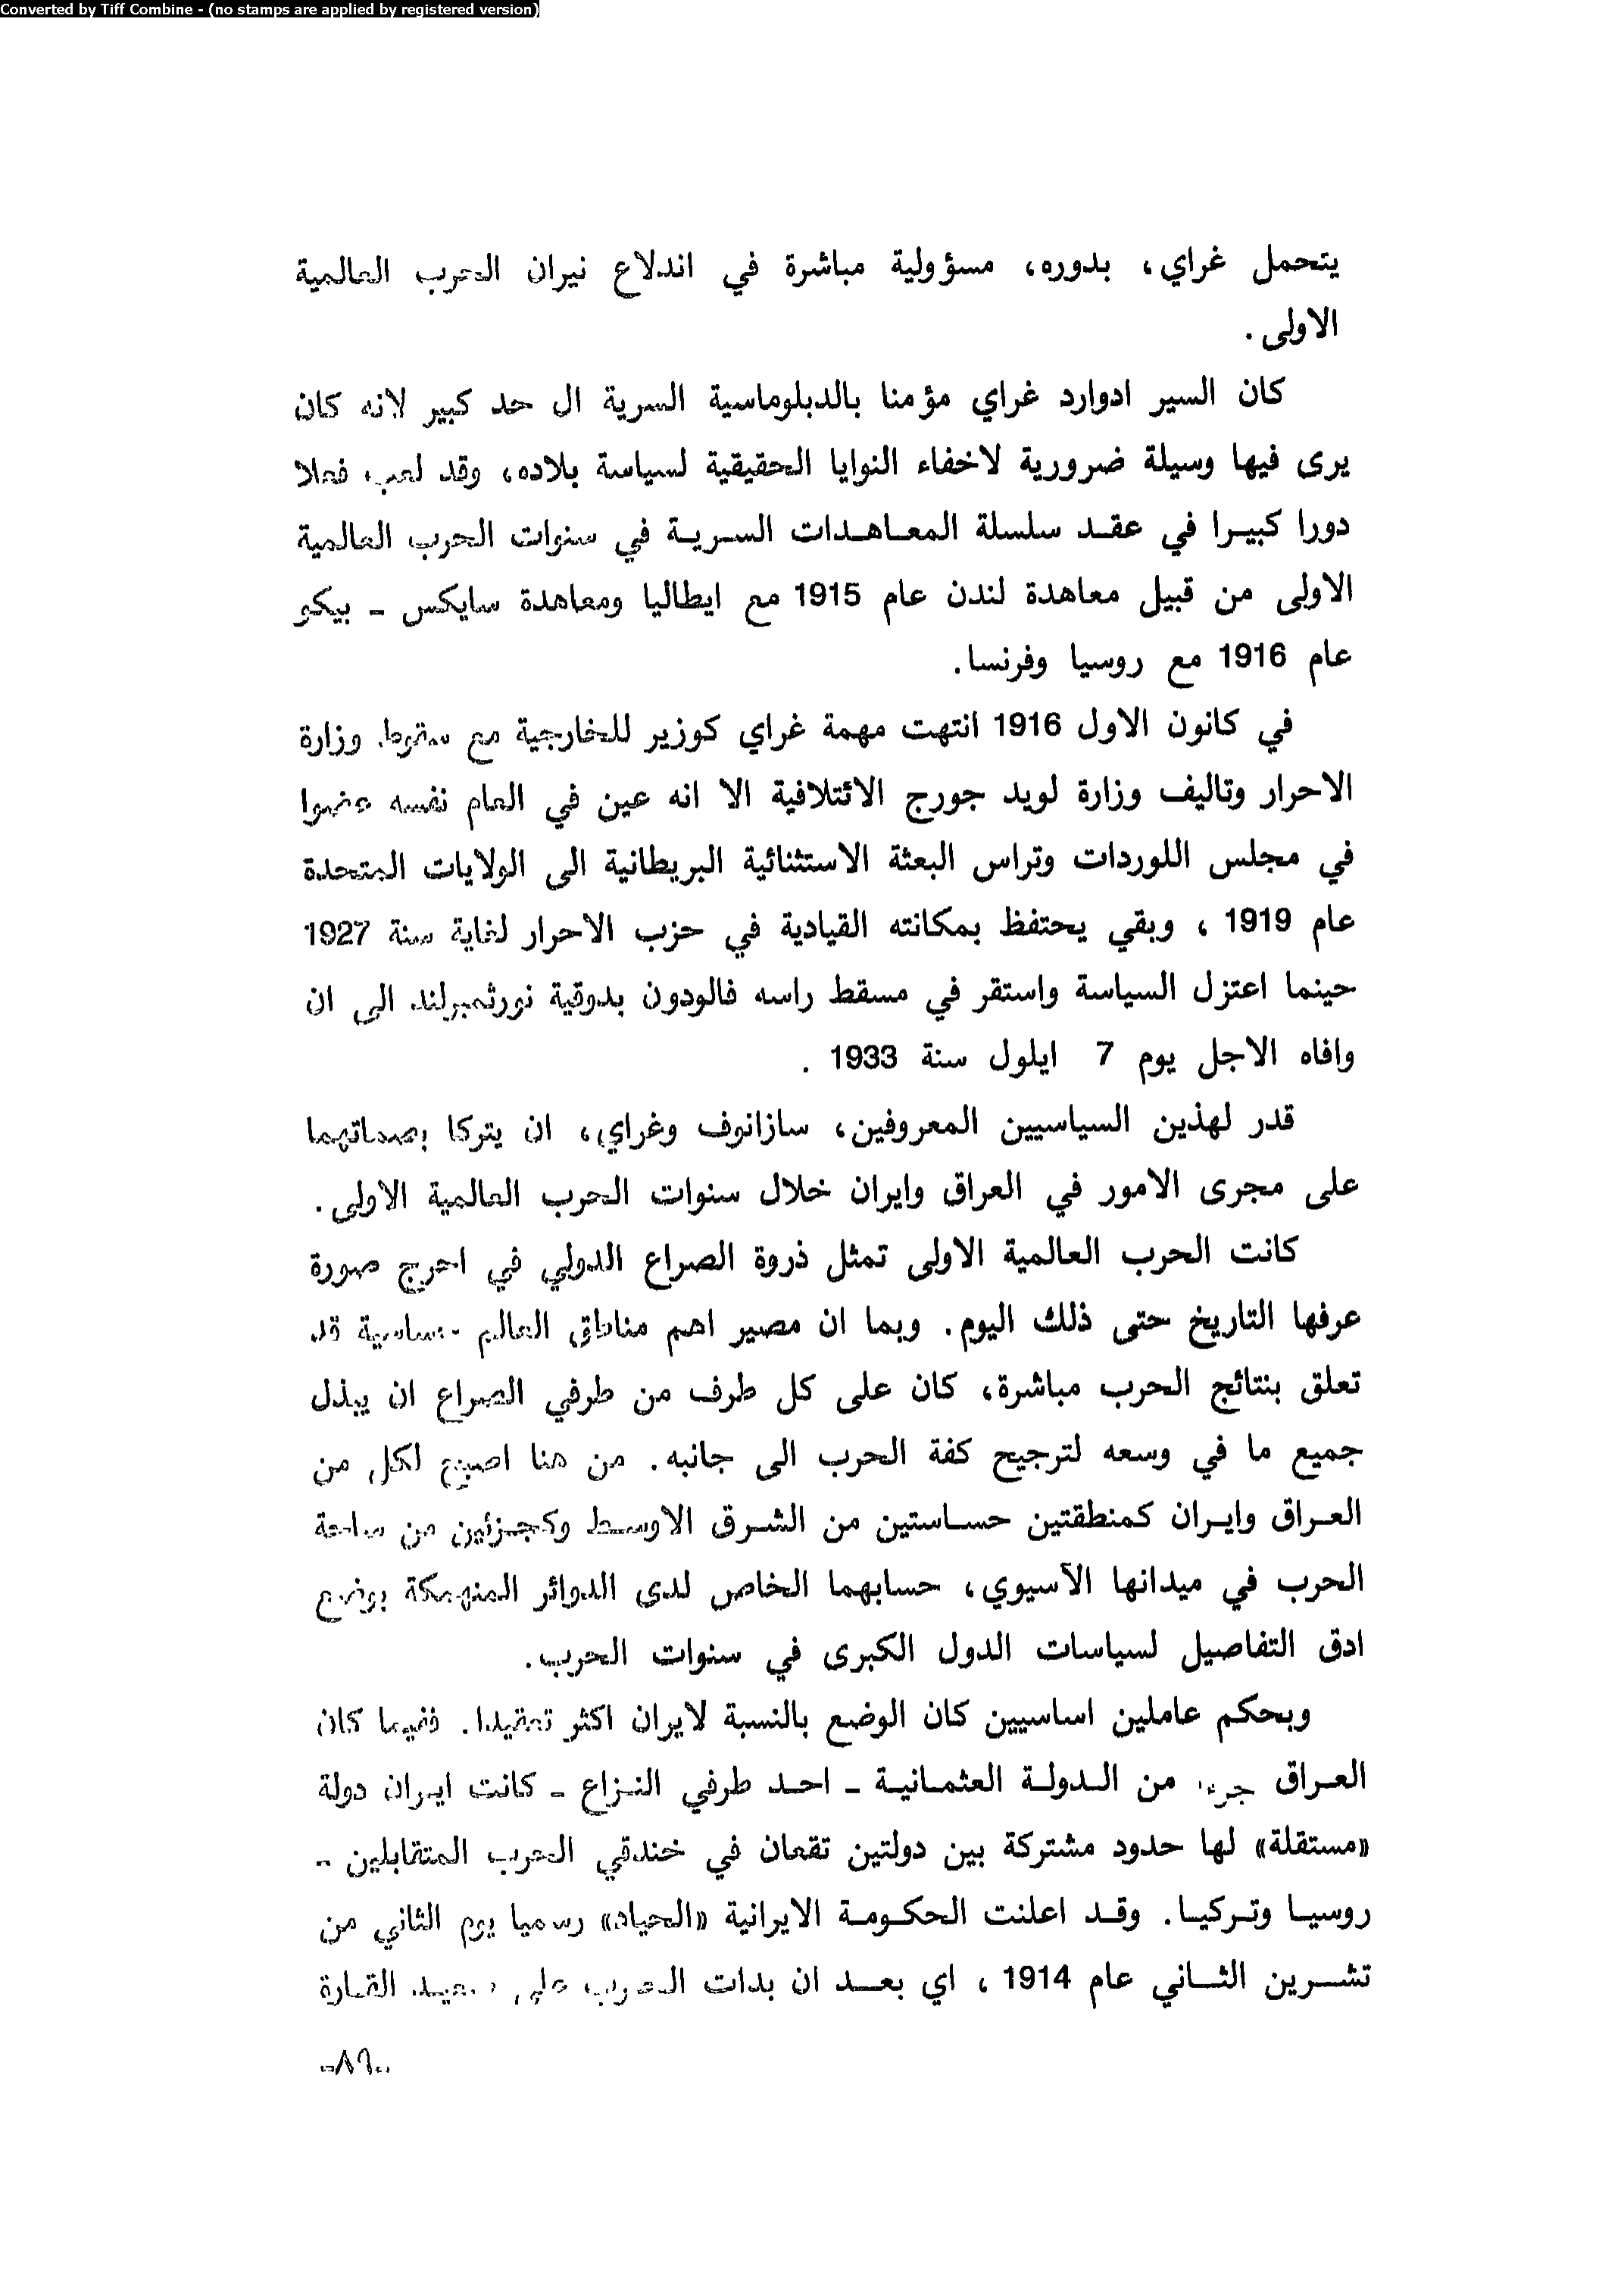 Converted by Tiff Combine - (no stamps are applied by registered version)
يتحمل غراي، بدوره، مسؤولية مباشرة في اندلاع نيران الحرب العالمية
الاولى .
كان السير ادوارد غراي مؤمنا بالدبلوماسية السرية ال حد كبير لانه كان
يرى فيها وسيلة ضرورية لاخفاء النوايا الحقيقية لسياسة بلاده، وقد لعب فعلا
دورا كبيرا في عقد سلسلة المعاهدات السرية في سنوات الحرب العالمية
الاولى من قبيل معاهدة لندن عام 1915 مع ايطاليا ومعاهدة سايكس - بيكو
عام 1916 مع روسيا وفرنسا.
في كانون الاول 1916 انتهت مهمة غراي كوزير للخارجية مع سقوط وزارة
الاحرار وتاليف وزارة لويد جورج الائتلافية الا انه عين في العام نفسه عضوا
في مجلس اللوردات وتراس البعثة الاستثنائية البريطانية الى الولايات المتحدة
عام 1919 ، وبقي يحتفظ بمكانته القيادية في حزب الاحرار لغاية سنة 1927
حينما اعتزل السياسة واستقر في مسقط راسه فالودون بدوقية نورثمبرلند الى ان
وافاه الاجل يوم 7 ايلول سنة 1933 .
قدر لهذين السياسيين المعروفين، سازانوف وغراي، ان يتركا بصماتهما
على مجرى الامور في العراق وايران خلال سنوات الحرب العالمية الاولى.
كانت الحرب العالمية الاولى تمثل ذروة الصراع الدولي في احرج صورة
عرفها التاريخ حتى ذلك اليوم. وبما ان مصير اهم مناطق العالم حساسية قد
تعلق بنتائج الحرب مباشرة، كان على كل طرف من طرفي الصراع ان يبذل
جميع ما في وسعه لترجيح كفة الحرب الى جانبه. من هنا اصبح لكل من
العراق وايران كمنطقتين حساستين من الشرق الاوسط وكجزئين من ساحة
الحرب في ميدانها الآسيوي، حسابهما الخاص لدى الدوائر المنهمكة بوضع
ادق التفاصيل لسياسات الدول الكبرى في سنوات الحرب.
وبحكم عاملين اساسيين كان الوضع بالنسبة لايران اكثر تعقيدا. ففيما كان
العراق جزءا من الدولة العثمانية - احد طرفي النزاع - كانت ايران دولة
«مستقلة» لها حدود مشتركة بين دولتين تقعان في خندقي الحرب المتقابلين -
روسيا وتركيا. وقد اعلنت الحكومة الايرانية «الحياد» رسميا يوم الثاني من
تشرين الثاني عام 1914 ، اي بعد ان بدات الحرب على صعيد القارة
-٨٩-